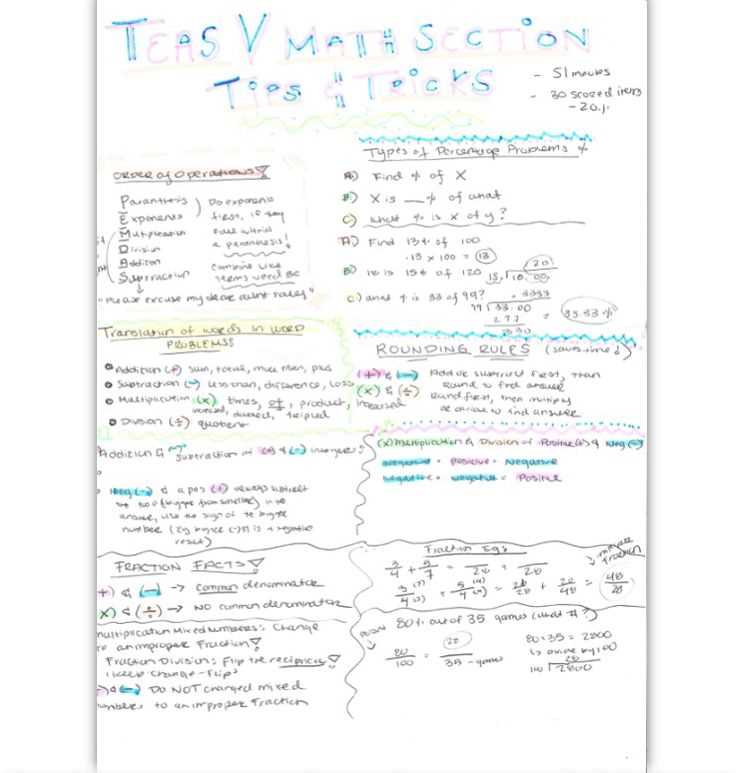 TEAS V MATH SECTION
TIPS & TRICKS
- 51 minutes
- 30 scored items
- 20%
Order of Operations
Paranthesis
Exponents
Multiplication
Division
Addition
Subtraction
Do exponents
first, if
a paranthesis!
Combine like
terms
"Please excuse my dear aunt
Types of Percentage Problems %
A) Find % of X
B) X is __% of what
C) What % is X of y?
A) Find 13% of 100
.13 x 100 = 13
B) 18 is 15% of 120
C) what % is 33 of 99?
.3333
99 33.00
297
330
= 33.33%
Translation of words in word
PROBLEMSS
Addition (+) sum, total, more than, plus
Subtraction (-) less than, difference, Loss
Multiplication (x) times, of, product, increased
doubled, tripled
Division (÷) quotient
ROUNDING RULES (saves time!)
(+) & (-) Add or subtract first, than
Round to find answer
(x) & (÷) Round first, then multiply
or divide to find answer
Addition & Subtraction of (+) & (-) integers:
Neg (-) & a pos (+) always subtract
the two (bigger from smaller) in the
answer, use the sign of the bigger
number (Eg bigger (-) # is a negative
result)
(x) Multiplication & Division of Positive (+) & Neg (-)
negative · positive = Negative
negative · negative = Positive
FRACTION FACTS
(+) & (-) → Common denominator
(x) & (÷) → NO common denominator
multiplication Mixed numbers: Change
to an improper Fraction
Fraction Division: Flip the reciprical
(keep-change-flip)
& (-) DO NOT changed mixed
numbers to an improper Fraction
Fraction Eqs
3/4 + 5/7 = /28 = /28
80% out of 35 games (what #?)
80/100 = 28/35 - games
80 x 35 = 2800
↳ divide by 100
28
100 2800